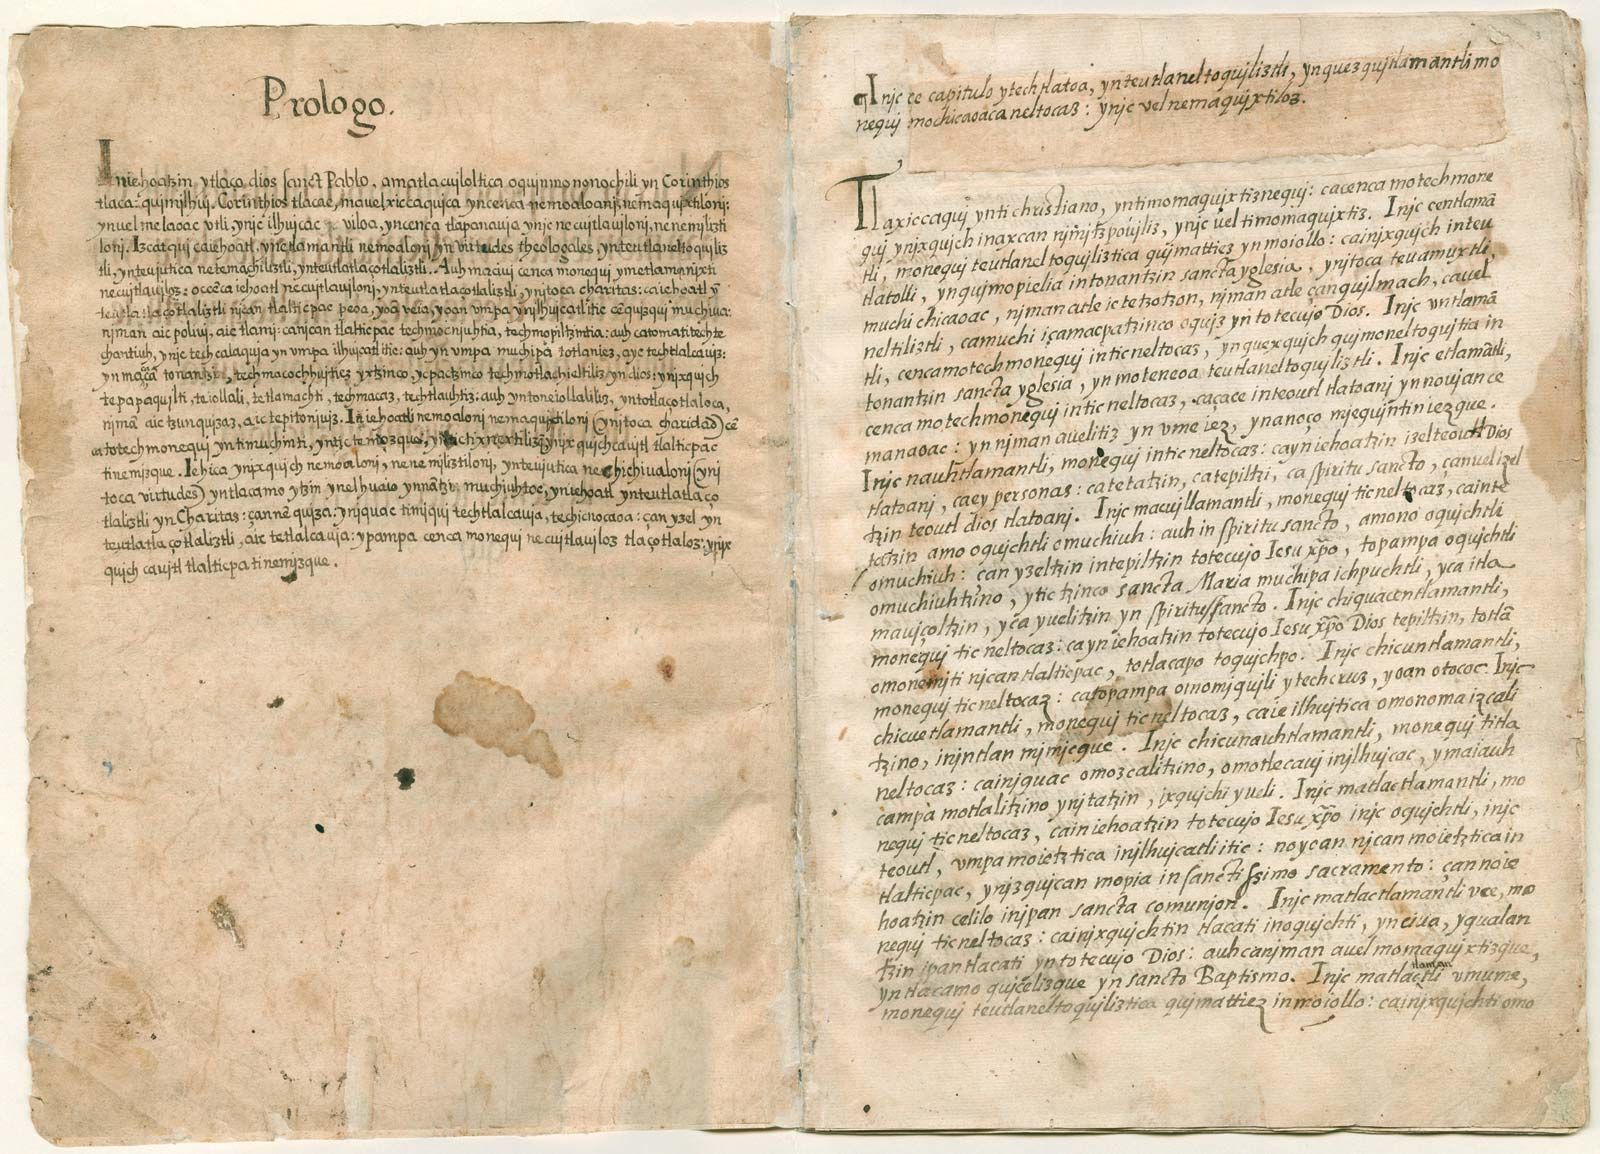 Prologo.
Iniehoatzin ytlaço dios sanct Pablo, amatlacuiloltica oquinmononochili yn Corinthios
tlaca: quimilhuj. Corinthios tlacae, mauel xiccaquica yncenca nemoaloni, nemaquixtiloni:
ynuel melaoac vtli, ynic ilhuicac viloa, yncenca tlapanauja ynic necuitlauiloni, nenemiliztiloni
loni. Izcatqui caiehoatl, ynetlamantli nemoaloni yn virtudes theologales, ynteutlaneltoquiliz
tli, ynteujutica netemachiliztli, ynteutlatlaçotlaliztli. Auh maciuj cenca monequi ymetlamanixti
necuitlauiloz: occẽca iehoatl necuitlauiloni, ynteutlatlaçotlaliztli, ynitoca charitas: caiehoatl ȳ
teutlatlaçotlaliztli njcan tlalticpac peoa, yoã veia, yoan vmpa ynilhuicatlitic cẽquizqui muchiua:
njman aic poliuj, aic tlamj: canjcan tlalticpac techmocnjuhtia, techmopiltzintia: auh catomatitechte
chantiuh, ynic techcalaquja yn vmpa ilhuicatlitic: auh yn vmpa muchipa totlaniez, ayc techtlalcauiz:
tonantzin, techmacochhuitiez yxtzinco, ycpactzinco techmotlachieltiliz yn dios: ynjxquich
tepapaquilti, teiollali, tetlamachti, techmacaz, techtlauhtiz: auh yntoneiollaliliz, yntotlaçotlaloca,
njmã aic tzunquizaz, aic tepitonjuiz. Iniehoatli nemoaloni nemaquixtiloni (ynitoca charidad) cẽ
ca totechmonequi yntimuchinti, yntictemozque, ynjxquichcauitl tlalticpac
tinemizque. Iehica ynjxquich nemoaloni, nenemiliztiloni, ynteujutica nechichiualoni (yni
toca virtudes) yntlacamo ytzin ynelhuaio ynnãtzi muchiuhtoc, yniehoatl ynteutlatlaço
tlaliztli yn Charitas: çannẽ quiza: ynjquac timjqui techtlalcauja, techicnocaoa: çan yzel yn
teutlatlaçotlaliztli, aic tetlalcauja: ypampa cenca monequi necuitlauiloz tlaçotlaloz: ynjx
quich cauitl tlalticpa tinemizque.
¶Injc ce capitulo ytech tlatoa, ynteutlaneltoqujliztli, ynquezqujtlamantli mo
nequj mochicaoaca neltocaz: ynjc vel nemaqujxtiloz.
Tlaxiccaquj ynti christiano, yntimomaqujxtiznequj: cacenca motechmone
quj ynjxqujch inaxcan njmjtzpoujliz, ynjc uel timomaqujxtiz. Injc centlamã
tli, monequj teutlaneltoqujliztica qujmattiez yn moiollo: cainjxqujch inteu
tlatolli, ynqujmopielia intonantzin sancta yglesia, ynjtoca teuamuxtli,
muchi chicaoac, njman atle ic tetzotzon, njman atle çanqujlmach, cauel
neltiliztli, camuchi içamacpatzinco oqujz yn totecujo Dios. Injc vntlamã
tli, cencamotechmonequj inticneltocaz, ynquexqujch qujmoneltoqujtia in
tonantzin sancta yglesia, yn moteneoa teutlaneltoqujliztli. Injc etlamãtli,
cenca motechmonequj inticneltocaz, caçace inteoutl tlatoanj ynnoujan ce
manaoac: yn njman auelitiz yn vme iez, ynanoço njequjntin iezque.
Injc nauhtlamantli, monequj inticneltocaz: cayniehoatzin izelteoutl Dios
tlatoanj, caey personas: catetatzin, catepiltzi, ca spiritu sancto, çanuel izel
tzin teoutl dios tlatoanj. Injc macujllamantli, monequj ticneltocaz, cainte
tatzin amo oqujchtli omuchiuh: auh in spiritu sancto, amono oqujchtli
omuchiuh: can yzeltzin intepiltzin totecujo Iesu xp̃o, topampa oqujchtli
omuchiuhtzino, ytictzinco sancta Maria muchipa ichpuchtli, yca itla
maujçoltzin, yca yuelitzin yn spiritussancto. Injc chiquacentlamantli,
monequj ticneltocaz: cayniehoatzin totecujo Iesu xp̃o Dios tepiltzin, totlã
omonemjti njcan tlalticpac, totlacapo toqujchpo. Injc chicuntlamantli,
monequj ticneltocaz: catopampa omomjqujli ytech cruz, yoan otococ. Injc
chicuetlamantli, monequj ticneltocaz, caie ilhujtica omonomaizcali
tzino, injntlan mjmjcque. Injc chicunauhtlamantli, monequj titla
neltocaz: cainjquac omozcalitzino, omotlecauj injlhujcac, ymaiauh
campa motlalitzino ynjtatzin, ixqujchi yueli. Injc matlactlamantli, mo
nequj ticneltocaz, cainiehoatzin totecujo Iesu xp̃o injc oqujchtli, injc
teoutl, vmpa moietztica injlhujcatliitic: noyoan njcan moietztica in
tlalticpac, ynjzqujcan mopia in sanctissimo sacramento: çannoie
hoatzin celilo injpan sancta comunjon. Injc matlactlamantli vce, mo
nequj ticneltocaz: cainjxqujchtin tlacati inoqujchti, yn ciua, yqualan
tzin ipan tlacati yntotecujo Dios: auhcanjman auel momaqujxtizque,
yntlacamo qujcelizque yn sancto Baptismo. Injc matlactlaman​tli vmume,
monequj teutlaneltoqujliztica qujmattiez inmoiollo: cainjxqujchti omo